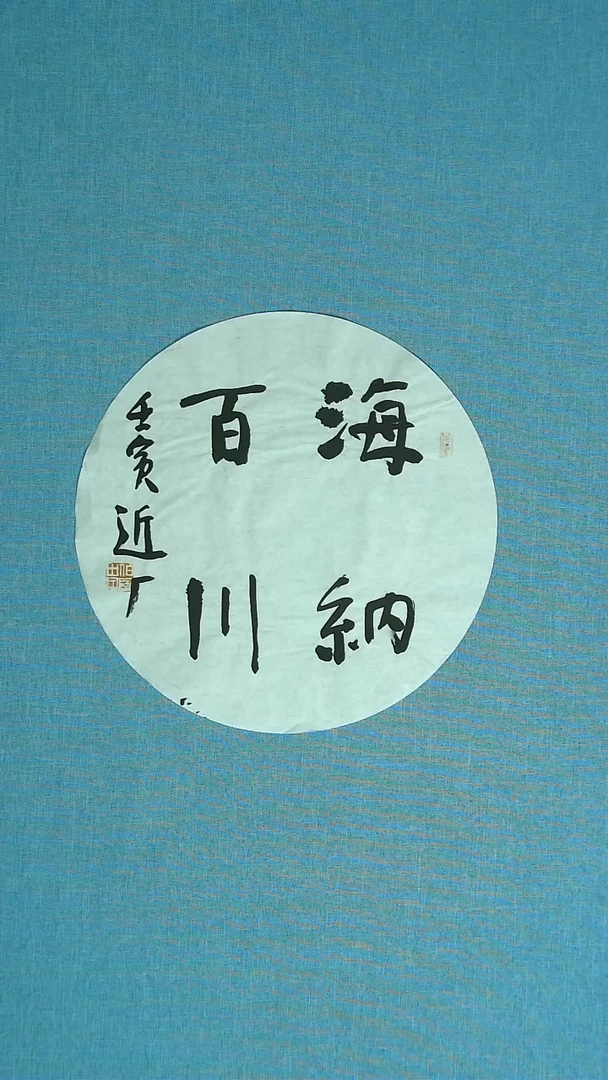 海納
百川
壬寅近厂